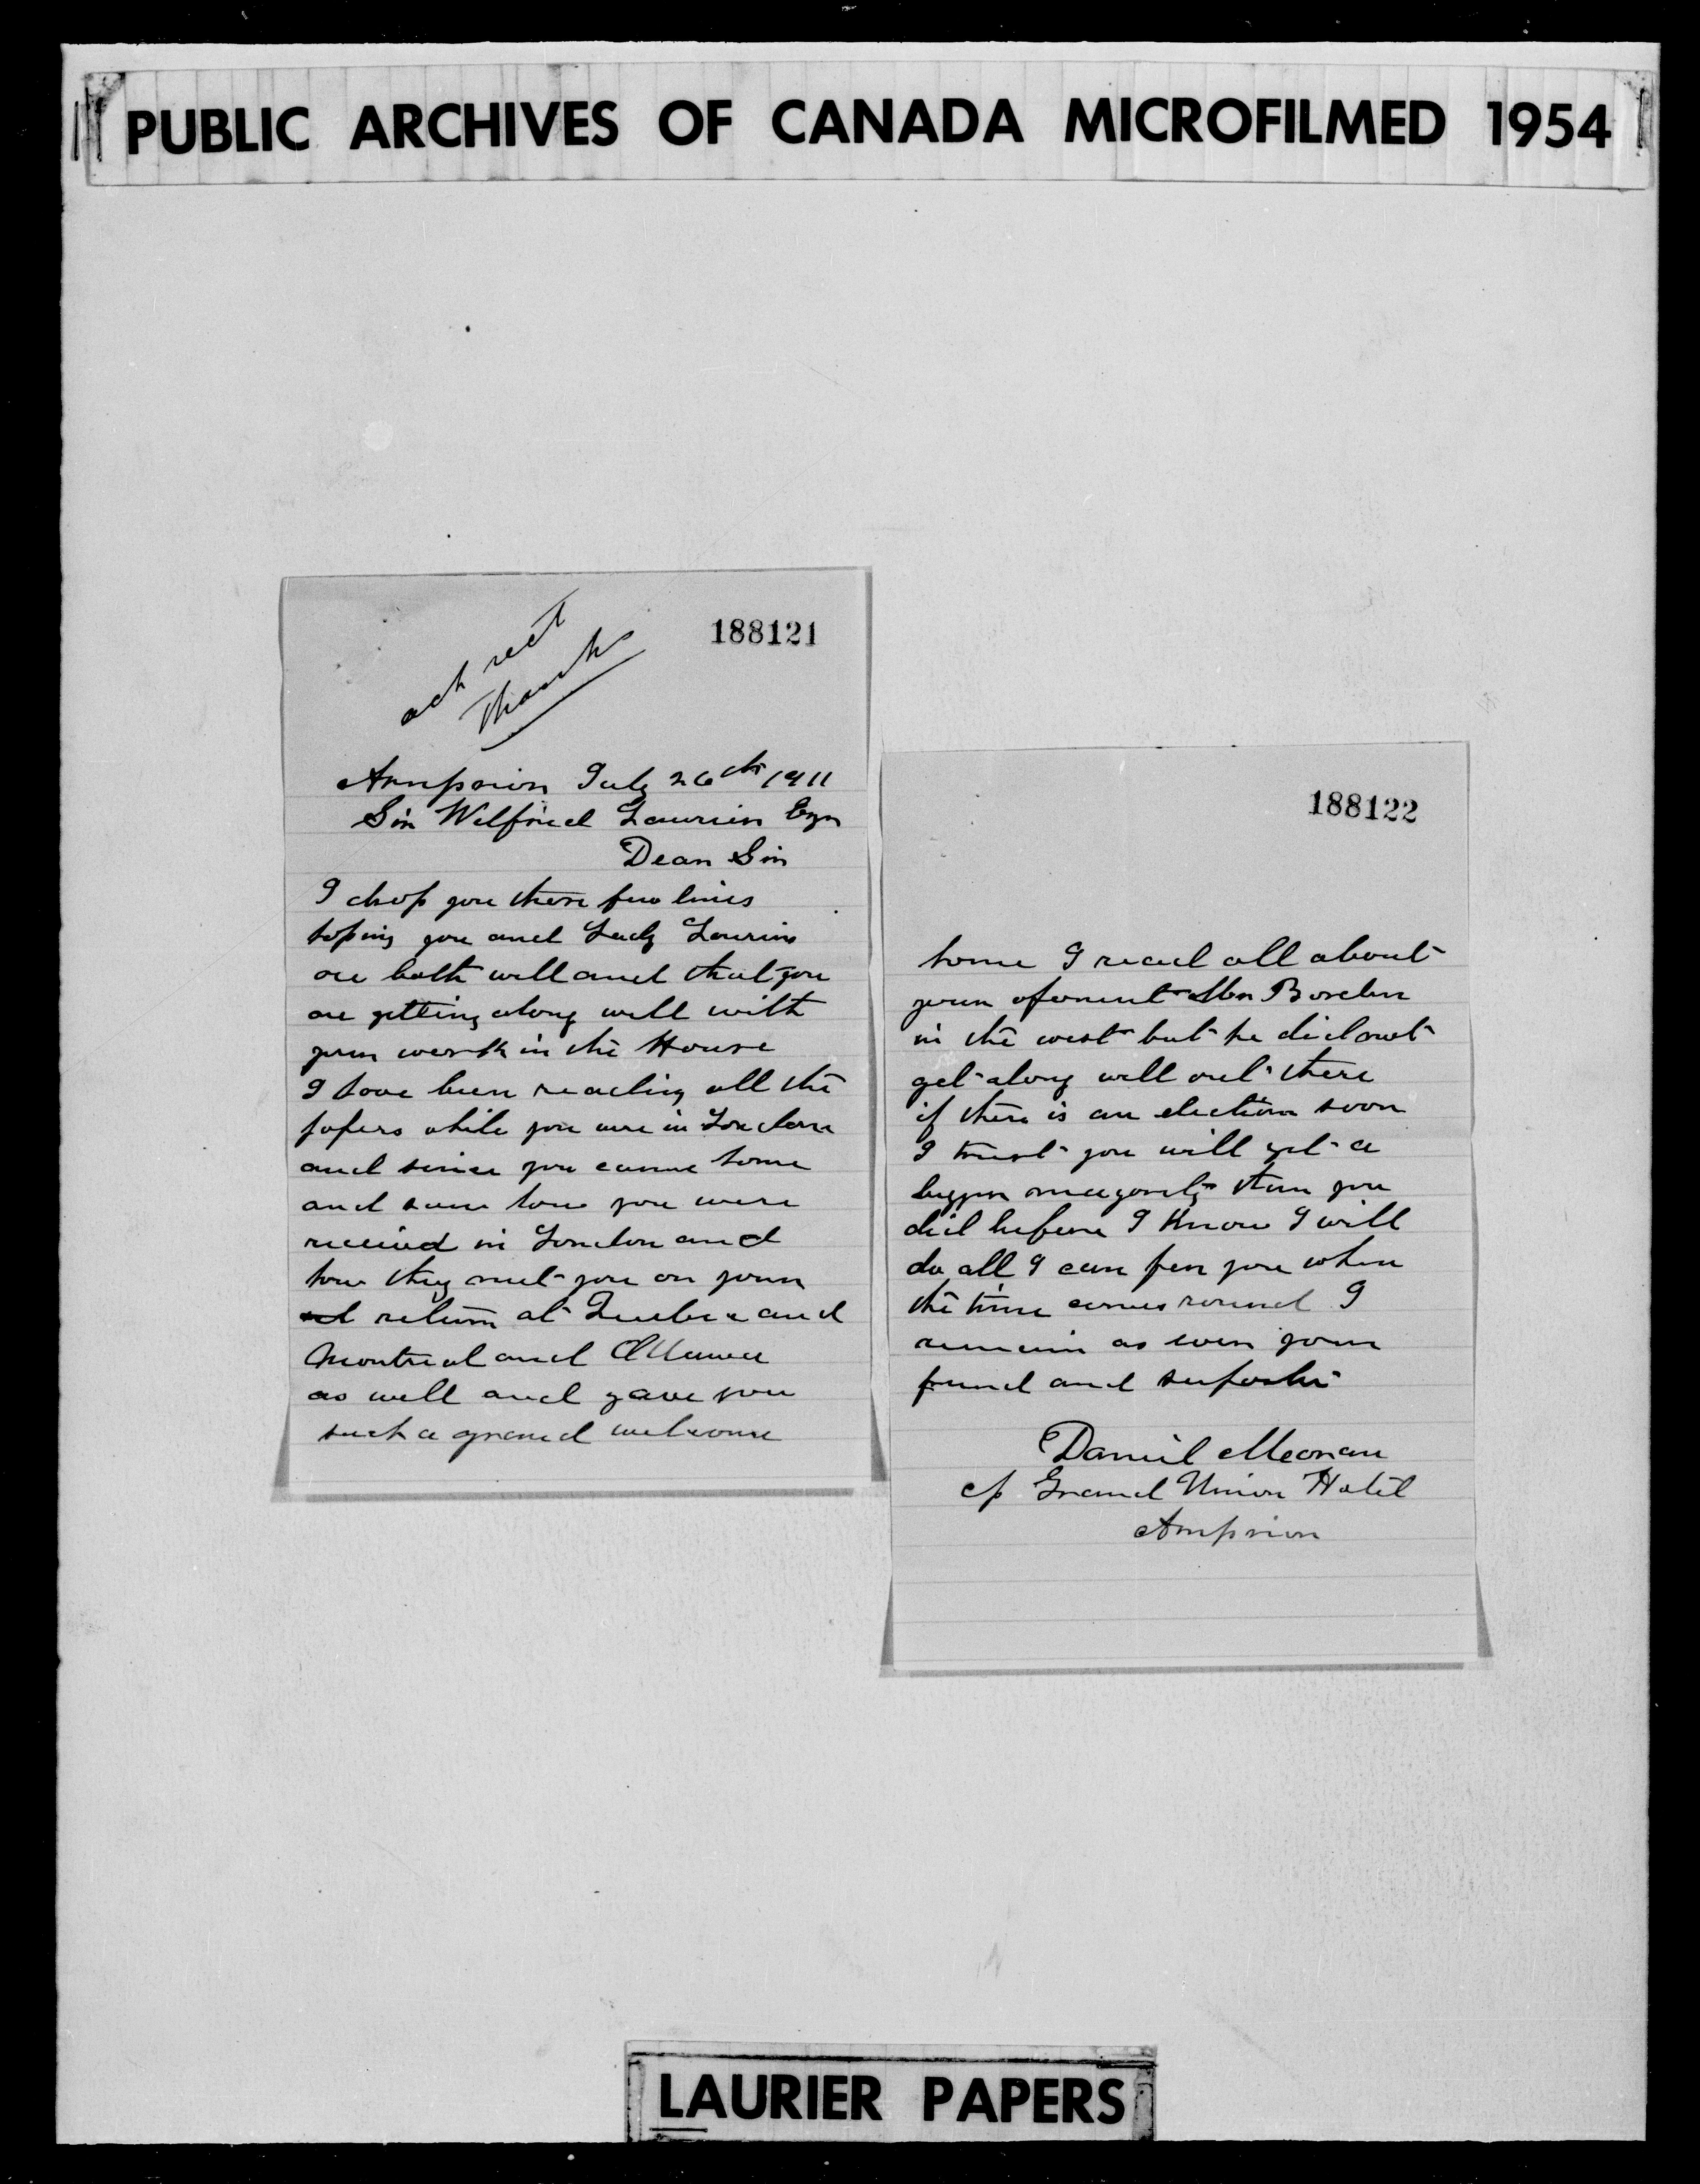 PUBLIC ARCHIVES OF CANADA MICROFILMED 1954
188121
ack rect
Thanks
Arnprior July 26th 1911
Sir Wilfried Laurier Eqr
Dear Sir
I drop you these few lines
hoping you and Lady Laurier
are both well and that you
are getting along well with
your work in the House
I have been reading all the
papers while you were in London
and since you came home
and saw how you were
received in London and
how they met you on your
return at Quebec and
Montreal and Ottawa
as well and gave you
such a grand welcome
188122
home I read all about
your oponent Mr Borden
in the west but he did not
get along well out there
if there is an election soon
I trust you will get a
bigger magority than you
did before I know I will
do all I can for you when
the time comes round I
remain as ever your
friend and suporter
Daniel
c/o Grand Union Hotel
Arnprior
LAURIER PAPERS